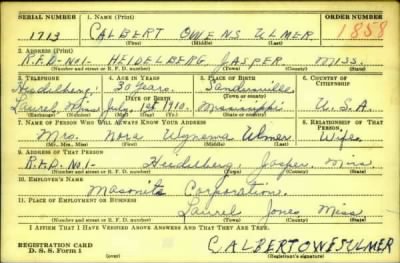 SERIAL NUMBER 1. NAME (Print) ORDER NUMBER
1713 CALBERT OWENS ULMER 1858
(First) (Middle) (Last)
2. ADDRESS (Print)
R.F.D-NO1- HEIDELBERG JASPER MISS.
(Number and street or R. F. D. number) (Town) (County) (State)
3. TELEPHONE 4. AGE IN YEARS 5. PLACE OF BIRTH 6. COUNTRY OF CITIZENSHIP
Heidelberg, 30 Years. Sandersville
DATE OF BIRTH
Laurel, Miss July, 1st 1910. Mississippi U.S.A
(Exchange) (Number) (Mo.) (Day) (Yr.) (State or country)
7. NAME OF PERSON WHO WILL ALWAYS KNOW YOUR ADDRESS 8. RELATIONSHIP OF THAT PERSON
Mrs. Nora Wynema Ulmer. Wife.
(Mr., Mrs., Miss) (First) (Middle) (Last)
9. ADDRESS OF THAT PERSON
R.F.D. No.1- Heidelberg, Jasper, Miss
(Number and street or R. F. D. number) (Town) (County) (State)
10. EMPLOYER'S NAME
Masonite Corporation.
11. PLACE OF EMPLOYMENT OR BUSINESS
Laurel Jones Miss
(Number and street or R. F. D. number) (Town) (County) (State)
I AFFIRM THAT I HAVE VERIFIED ABOVE ANSWERS AND THAT THEY ARE TRUE.
REGISTRATION CARD
D. S. S. Form 1
CALBERT OWESULMER
(Registrant's signature)